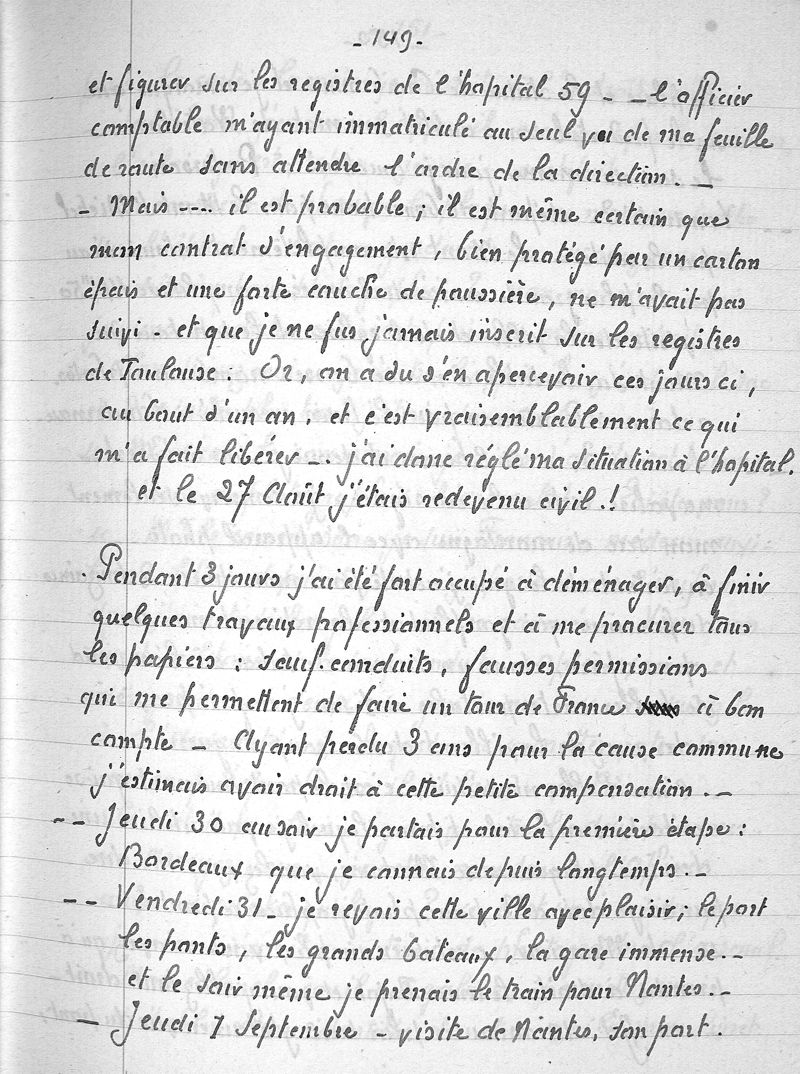 - 149 -
et figurer sur les registres de l'hopital 59 - - l'officier
comptable m'ayant immatriculé au seul vu de ma feuille
de route sans attendre l'ordre de la direction. -
- Mais ---- il est probable ; il est même certain que
mon contrat d'engagement, bien protégé par un carton
épais et une forte couche de poussière, ne m'avait pas
suivi - et que je ne fus jamais inscrit sur les registres
de Toulouse : Or, on a du s'en apercevoir ces jours ci,
au bout d'un an, et c'est vraisemblablement ce qui
m'a fait libérer -. j'ai donc réglé ma situation à l'hopital.
et le 27 Août j'étais redevenu civil.!
. Pendant 3 jours j'ai été fort occupé à déménager, à finir
quelques travaux professionnels et à me procurer tous
les papiers : sauf.conduits, fausses permissions
qui me permettent de faire un tour de France à bon
compte - Ayant perdu 3 ans pour la cause commune
j'estimais avoir droit à cette petite compensation. -
-- Jeudi 30 au soir je partais pour la première étape :
Bordeaux que je connais depuis longtemps. -
-- Vendredi 31 - je revois cette ville avec plaisir ; le port
les ponts, les grands bateaux, la gare immense. -
et le soir même je prenais le train pour Nantes. -
- Jeudi 1 Septembre - visite de Nantes, son port.